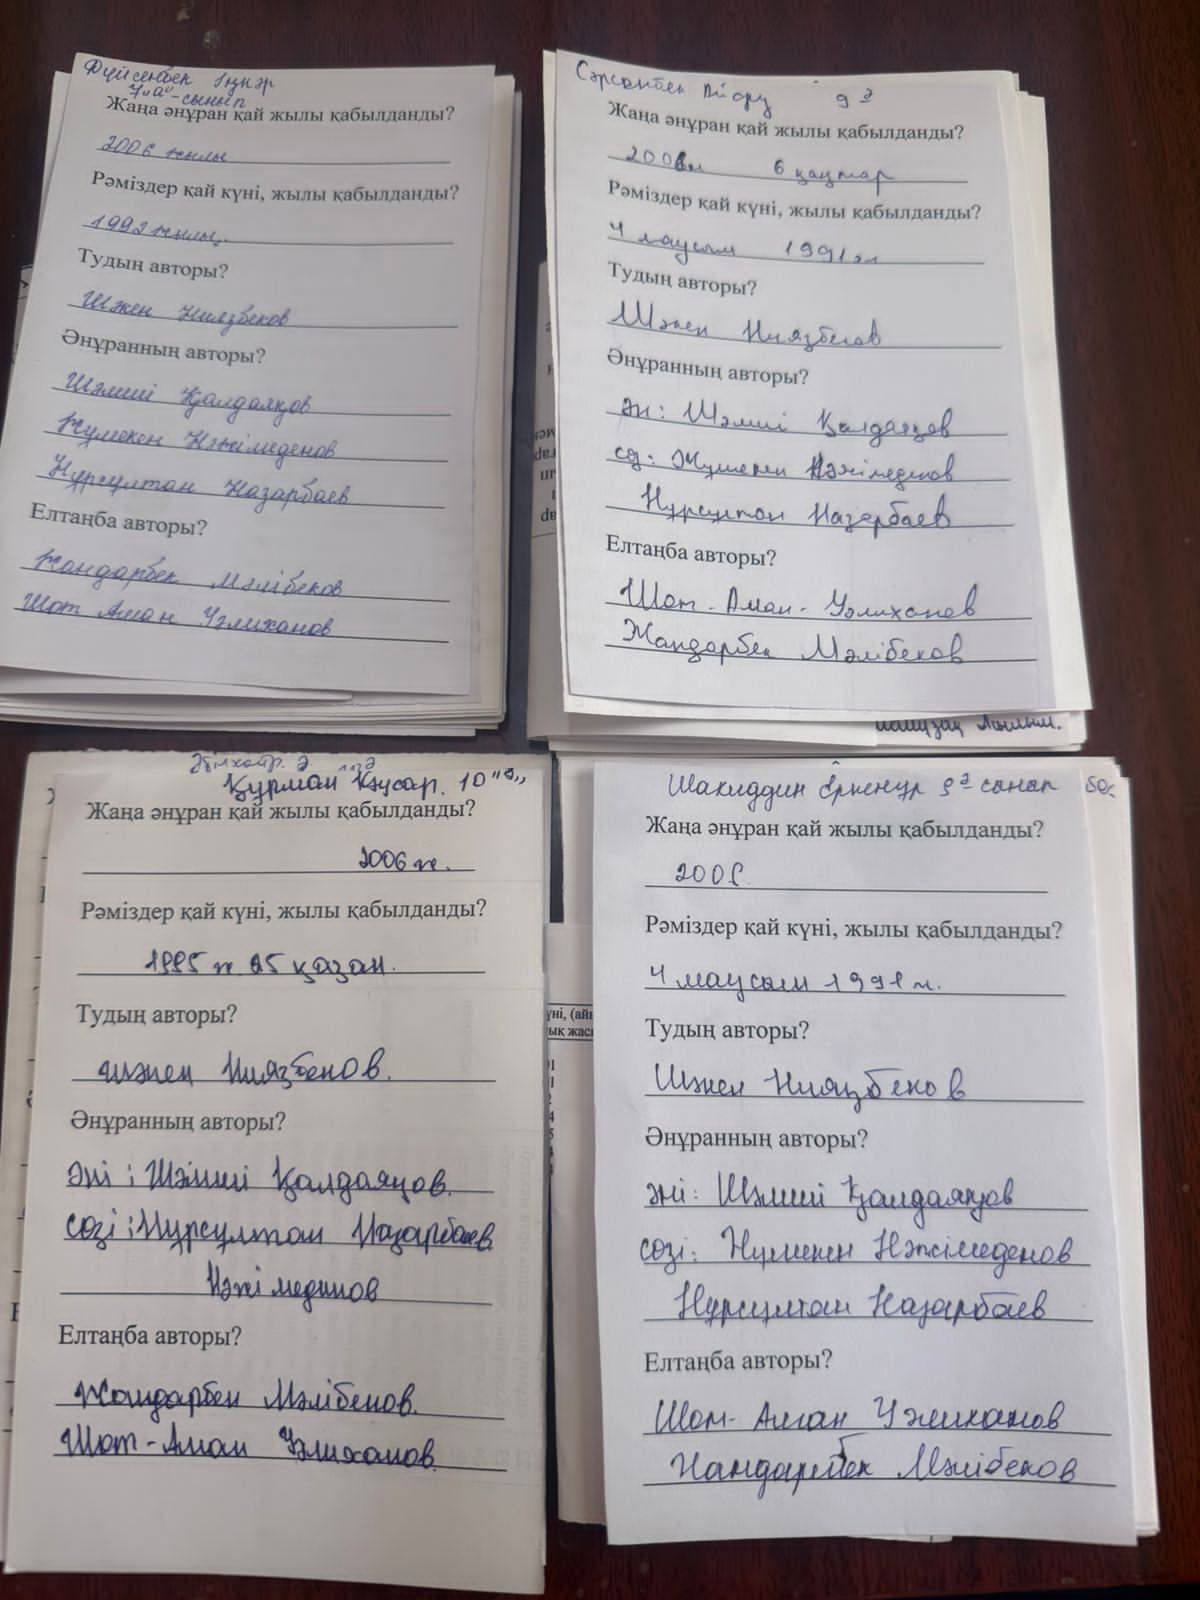 Дүйсенбек Іңкәр
7 "а" - сынып
Жаңа әнұран қай жылы қабылданды?
2006 жылы
Рәміздер қай күні, жылы қабылданды?
1992 жылы.
Тудың авторы?
Шәкен Ниязбеков
Әнұранның авторы?
Шәмші Қалдаяқов
Жумекен Нәжімеденов
Нұрсұлтан Назарбаев
Елтаңба авторы?
Жандарбек Мәлібеков
Шот Аман Уәлиханов
Сәрсанбек 9 ə
Жаңа әнұран қай жылы қабылданды?
2006ж 6 қаңтар
Рәміздер қай күні, жылы қабылданды?
4 маусым 1991ж
Тудың авторы?
Шәкен Ниязбеков
Әнұранның авторы?
ән: Шәмші Қалдаяқов
сөз: Жұмекен Нәжімеденов
Нұрсұлтан Назарбаев
Елтаңба авторы?
Шот - Аман - Уәлиханов
Жандарбек Мәлібеков
Құрман 10 "ә"
Жаңа әнұран қай жылы қабылданды?
2006 ж.
Рәміздер қай күні, жылы қабылданды?
1995 ж 25 қазан.
Тудың авторы?
шәкен Ниязбеков.
Әнұранның авторы?
әні : Шәмші Қалдаяқов.
сөзі : Нұрсұлтан Назарбаев
Нәжімединов
Елтаңба авторы?
Жандарбек Мәлібеков.
Шот - Аман Уәлиханов.
Шахиддин Еркенұр 9 ə сынып
Жаңа әнұран қай жылы қабылданды?
2006
Рәміздер қай күні, жылы қабылданды?
4 маусым 1991ж.
Тудың авторы?
Шәкен Ниязбеков
Әнұранның авторы?
әні: Шәмші Қалдаяқов
сөзі: Жумекен Нәжімеденов
Нұрсұлтан Назарбаев
Елтаңба авторы?
Шот - Аман Уәлиханов
Жандарбек Мәлібеков